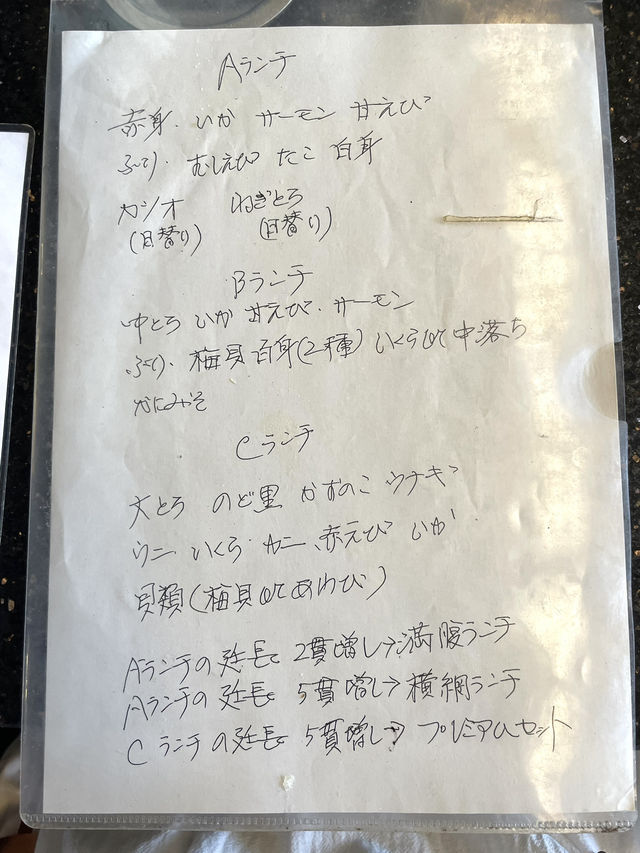 Aランチ
赤身、いか サーモン 甘えび
ぶり、むしえび たこ 白身
カツオ ねぎとろ
(日替り) (日替り)
Bランチ
中とろ いか 甘えび、サーモン
ぶり、梅貝 白身(2種) いくら or 中落ち
かにみそ
Cランチ
大とろ のど黒 かずのこ ウナギ
ウニ いくら カニ、赤えび いか
貝類(梅貝 or あわび)
Aランチの延長 2貫増し→満腹ランチ
Aランチの延長 5貫増し→横綱ランチ
Cランチの延長 5貫増し→プレミアムセット